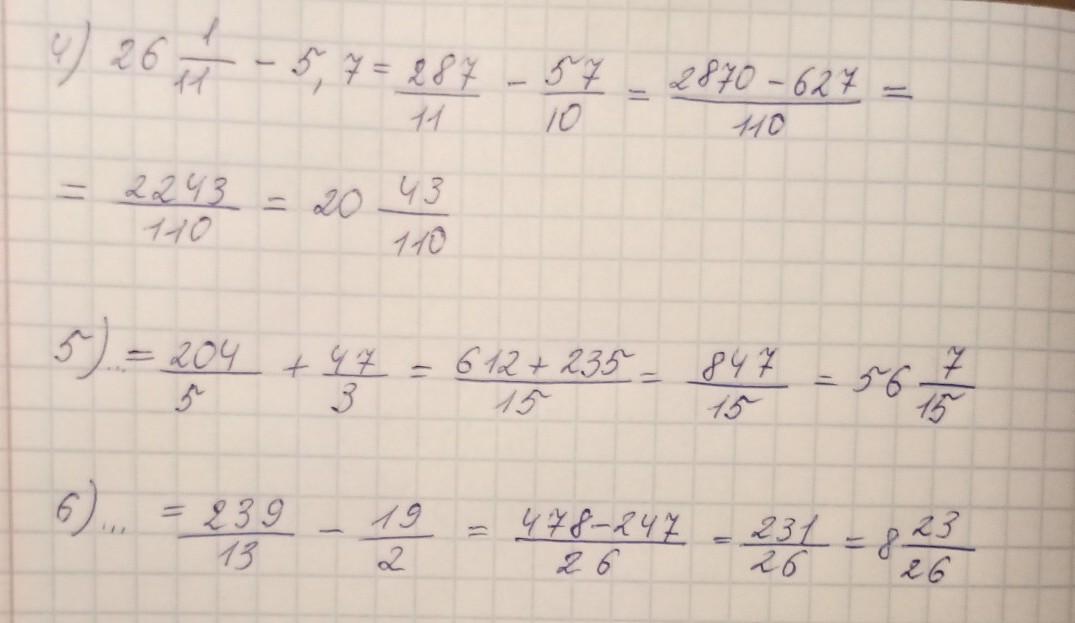 4) 26 1/11 - 5,7 = 287/11 - 57/10 = 2870 - 627/110 =
= 2243/110 = 20 43/110
5)... = 204/5 + 47/3 = 612 + 235/15 = 847/15 = 56 7/15
6)... = 239/13 - 19/2 = 478 - 247/26 = 231/26 = 8 23/26